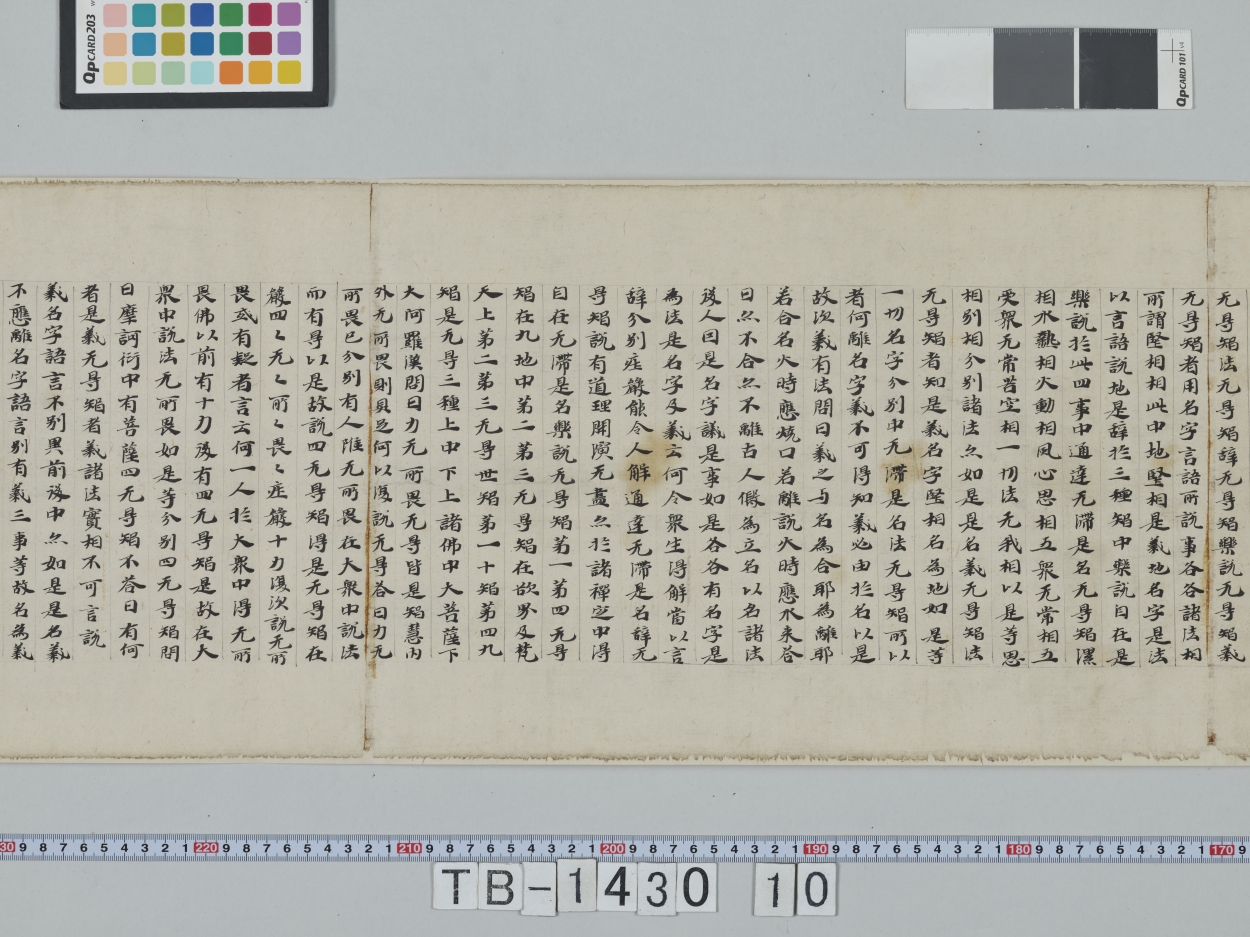 无㝵智法无㝵智辞无㝵智樂說无㝵智義
无㝵智者用名字言語所說事各各諸法相
所謂堅相相此中地堅相是義地名字是法
以言語說地是辞於三種智中樂說自在是
樂說於此四事中通達无滯是名无㝵智濕
相水熱相火動相風心思相五衆无常相五
受衆无常苦空相一切法无我相以是等思
相別相分別諸法亦如是是名義无㝵智法
无㝵智者知是義名字堅相名為地如是等
一切名字分別中无滯是名法无㝵智所以
者何離名字義不可得知義必由於名以是
故次義有法問曰義之与名為合耶為離耶
若合名火時應燒口若離說火時應水来荅
曰亦不合亦不離古人假為立名以名諸法
後人因是名字議是事如是各各有名字是
為法是名字及義云何令衆生得解當以言
辞分別莊嚴能令人解通達无滯是名辞无
㝵智說有道理開演无盡亦於諸禪定中得
自在无滯是名樂說无㝵智第一第四无㝵
智在九地中第二第三无㝵智在欲界及梵
天上第二第三无㝵世智第一十智第四九
智是无㝵三種上中下上諸佛中大菩薩下
大阿羅漢問曰力无所畏无㝵皆是智慧内
外无所畏則具足何以復說无㝵荅曰力无
所畏已分別有人雖无所畏在大衆中說法
而有㝵以是故說四无㝵智得是无㝵智在
嚴四〻无〻所〻畏〻莊嚴十力復次說无所
畏或有疑者言云何一人於大衆中得无所
畏佛以前有十力後有四无㝵智是故在大
衆中說法无所畏如是等分別四无㝵智問
曰摩訶衍中有菩薩四无㝵智不荅曰有何
者是義无㝵智者義諸法實相不可言說
義名字語言不別異前後中亦如是是名義
不應離名字語言別有義三事等故名為義
QpCARD 203
QpCARD 101 v4
30 9 8 7 6 5 4 3 2 1 220 9 8 7 6 5 4 3 2 1 210 9 8 7 6 5 4 3 2 1 200 9 8 7 6 5 4 3 2 1 190 9 8 7 6 5 4 3 2 1 180 9 8 7 6 5 4 3 2 1 170 9
TB-1430 10